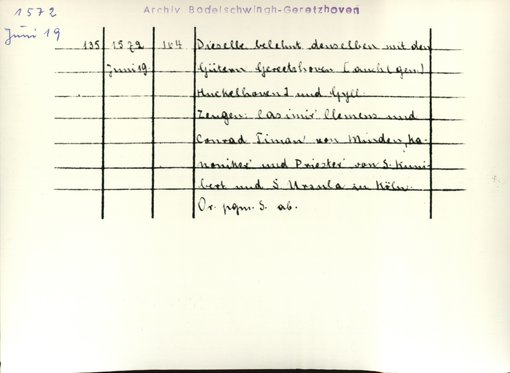 1572
Juni 19
Archiv Bodelschwingh-Geretzhoven
195 1572 184 Dieselbe belehnt denselben mit den
Juni 19 Gütern Gereetshoven (auch gen.
Huckelhoven) und Gyll.
Zeugen: Casimir Clemens und
Conrad Timan von Minden, Ka-
noniker und Priester von S. Kuni-
bert und S. Ursula zu Köln.
Or. pgm. S. ab.